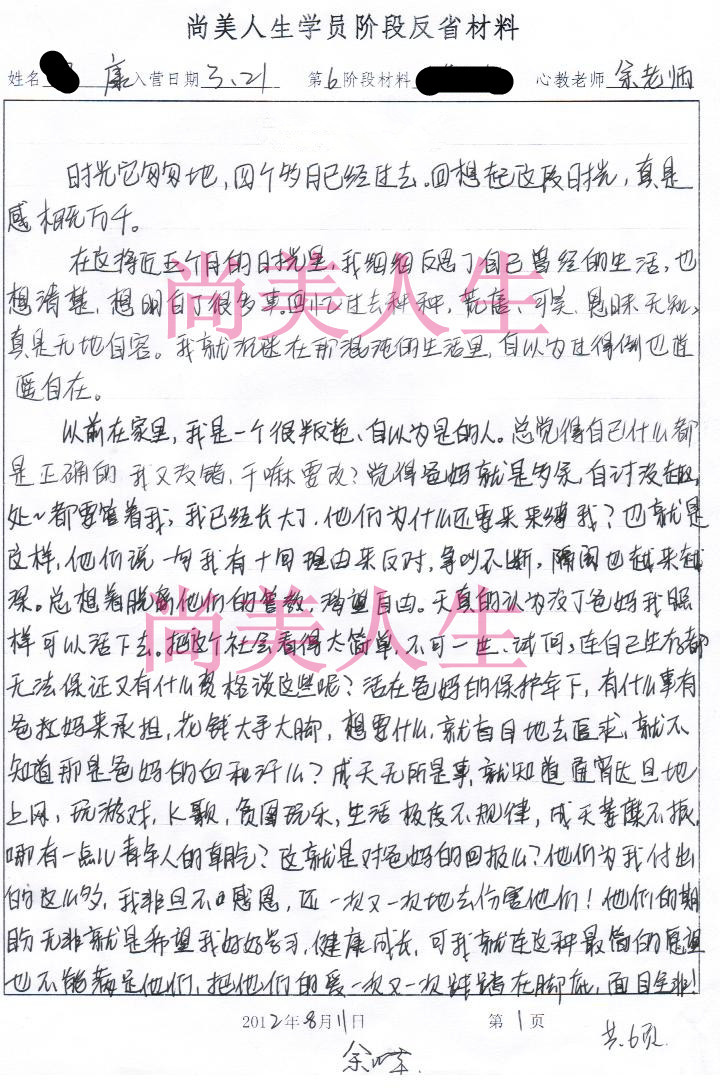 尚美人生学员阶段反省材料
姓名 康 入营日期 3.21 第6阶段材料 心教老师 余老师
时光它匆匆地,四个多月已经过去。回想起这段时光,真是
感相无万千。
在这将近五个月的时光里,我细细反思了自己曾经的生活,也
想清楚,想明白了很多事。回忆过去种种,荒唐、可笑、愚昧无知,
真是无地自容。我就沉迷在那混沌的生活里,自以为过得倒也逍
遥自在。
以前在家里,我是一个很叛逆、自以为是的人。总觉得自己什么都
是正确的 我又没错,干嘛要改?觉得爸妈就是多余,自讨没趣,
处~都要管着我,我已经长大了,他们为什么还要来束缚我?也就是
这样,他们说一句我有十句理由来反对,争吵不断,隔阂也越来越
深。总想着脱离他们的管教,渴望自由。天真的认为没了爸妈我照
样可以活下去。把这个社会看得太简单,不可一世。试问,连自己生存都
无法保证又有什么资格谈这些呢?活在爸妈的保护伞下,有什么事有
爸拉妈来承担,花钱大手大脚,想要什么,就盲目地去追求,就不
知道那是爸妈的血和汗么?成天无所是事,就知道通宵达旦地
上网,玩游戏,K歌,贪图玩乐,生活极度不规律,成天萎靡不振,
哪有一点儿青年人的朝气?这就是对爸妈的回报么?他们为我付出
的这么多,我非但不感恩,还一次又一次地去伤害他们!他们的期
盼无非就是希望我好好学习,健康成长,可我就连这种最简的愿望
也不能满足他们,把他们的爱一次又一次踩踏在脚底,面目全非!
2012年8月11日 第1页
共6页
尚美人生
尚美人生